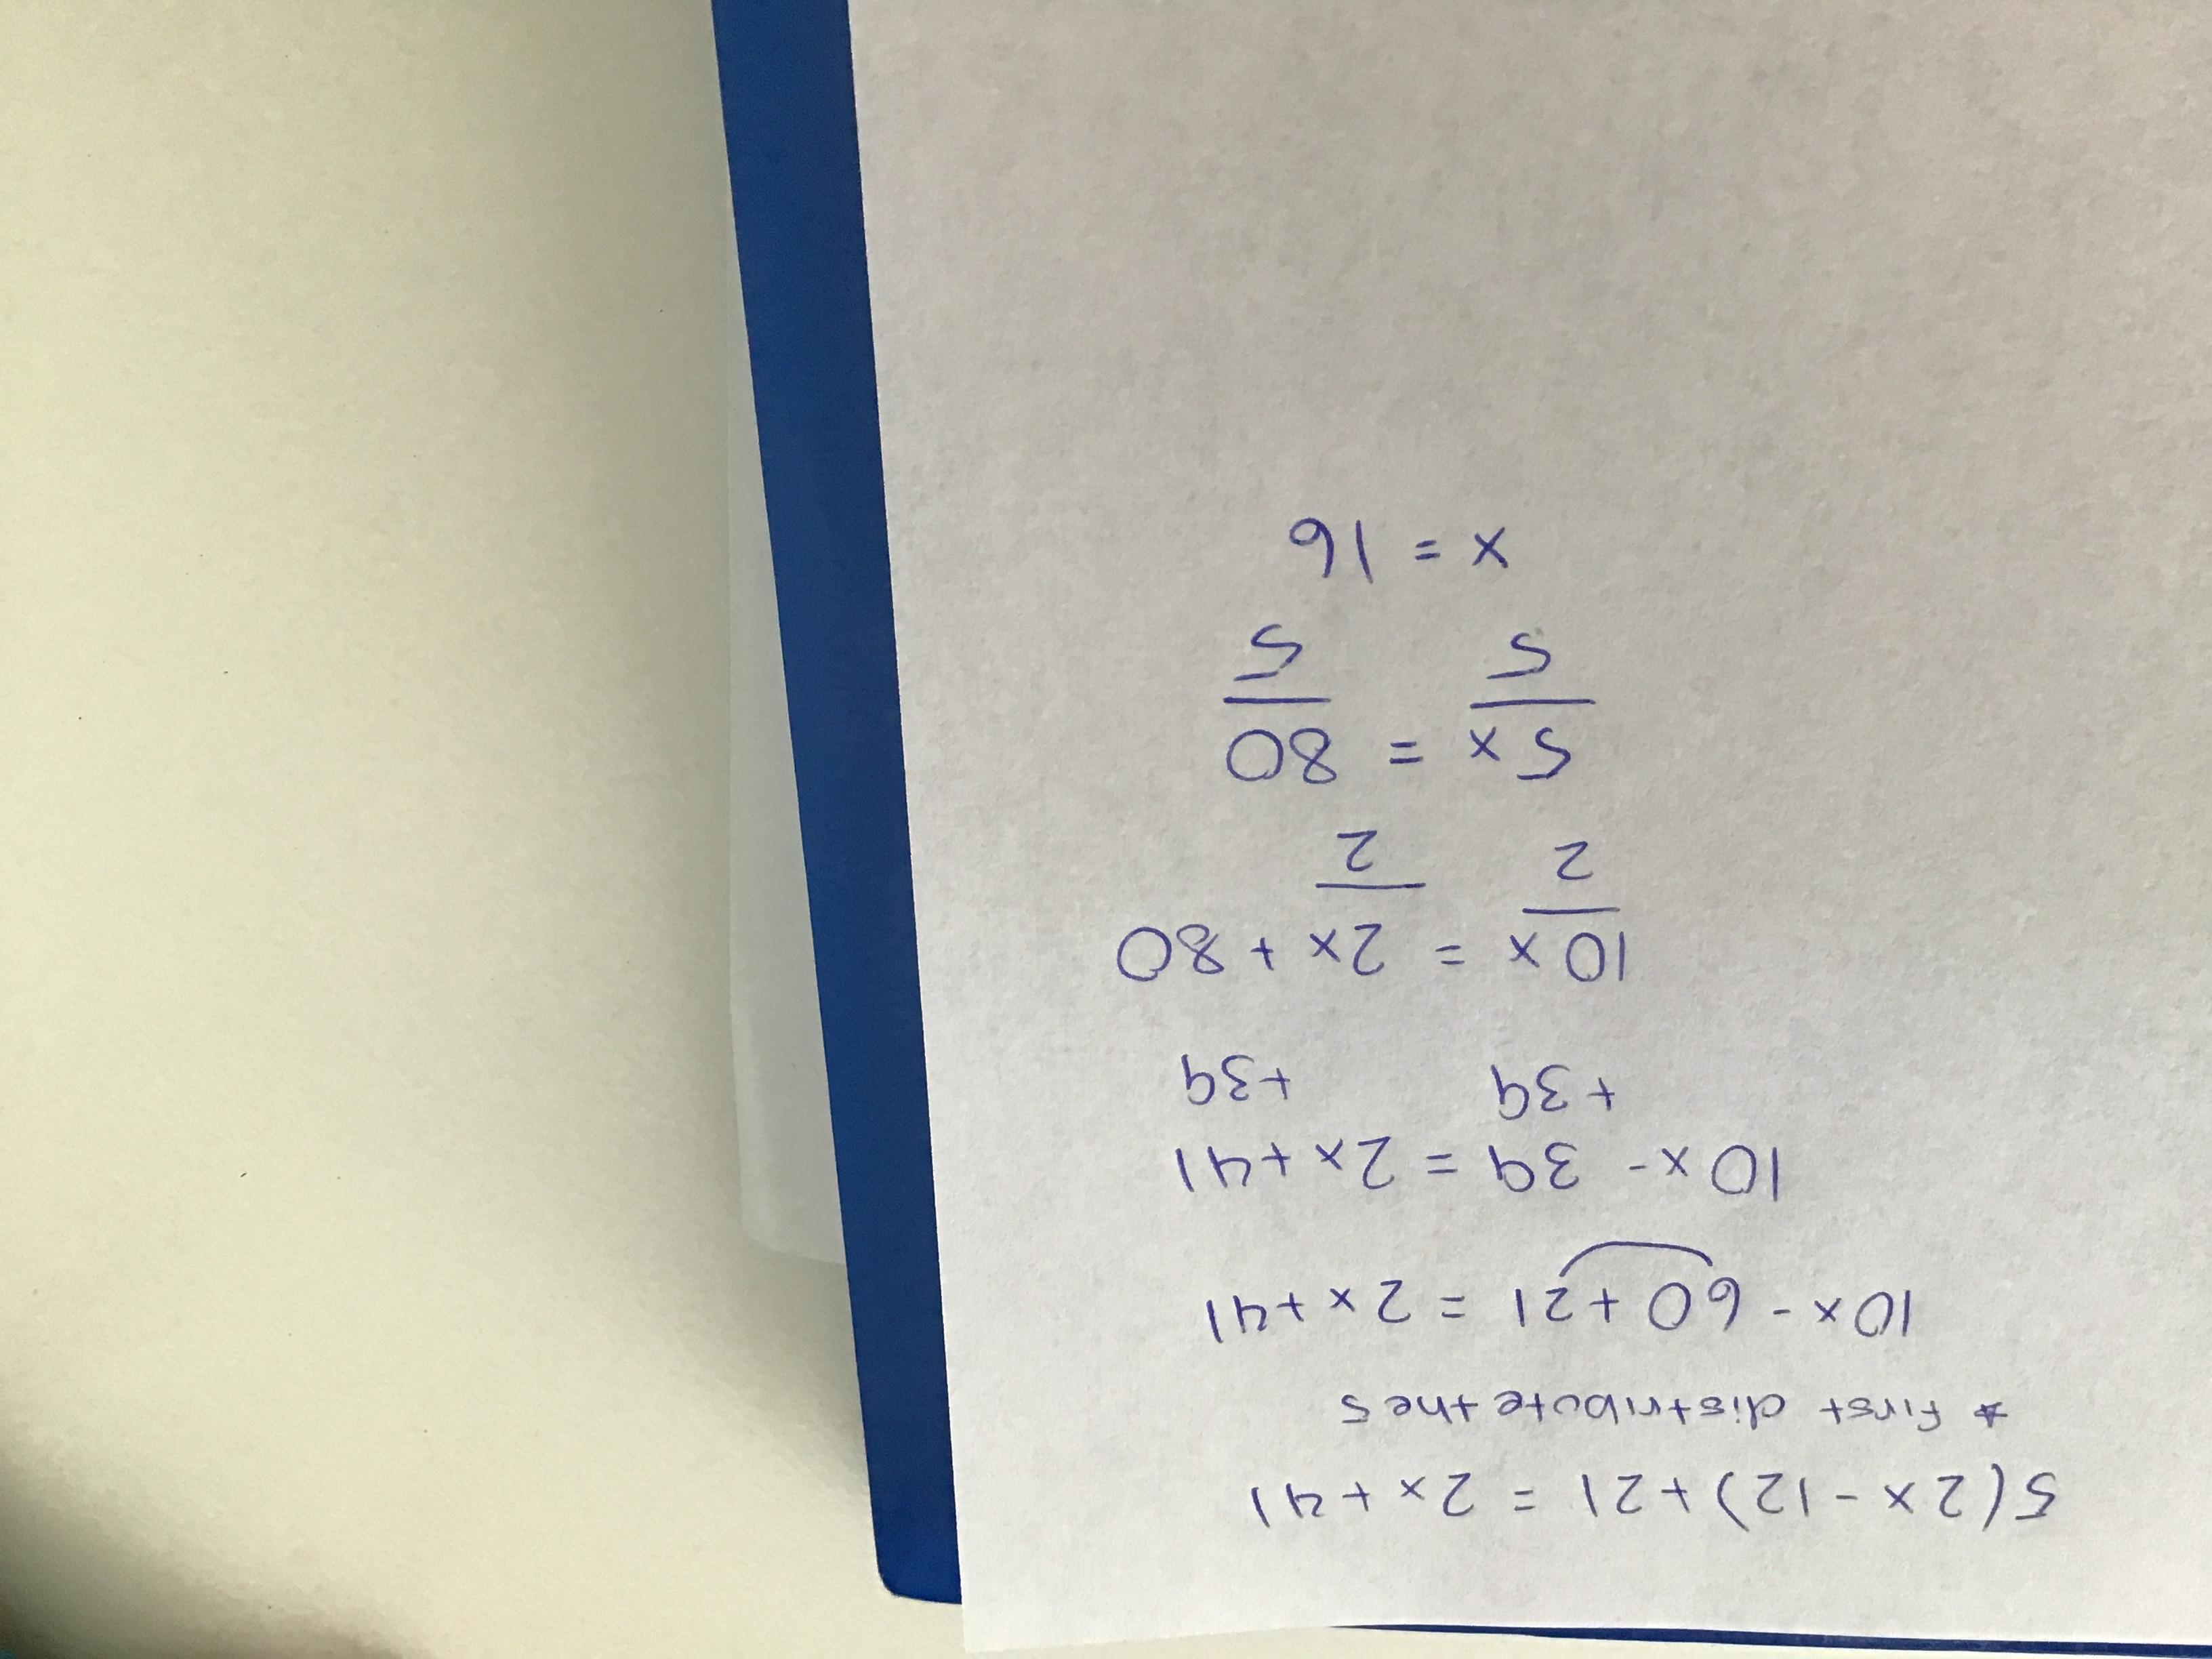 5(2x - 12) + 21 = 2x + 41
* first distribute the 5
10x - 60 + 21 = 2x + 41
10x - 39 = 2x + 41
+39 +39
10x = 2x + 80
2 2
5x = 80
5 5
x = 16